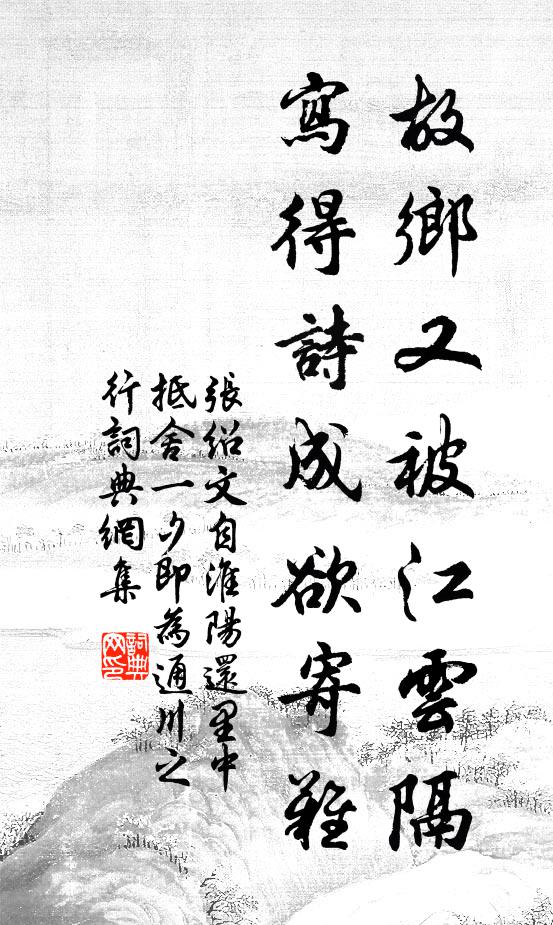 故鄉又被江雲隔
寫得詩成欲寄難
張紹文自淮陽還里中
抵舍一夕即為通川之
行詞典網集
詞典
网印